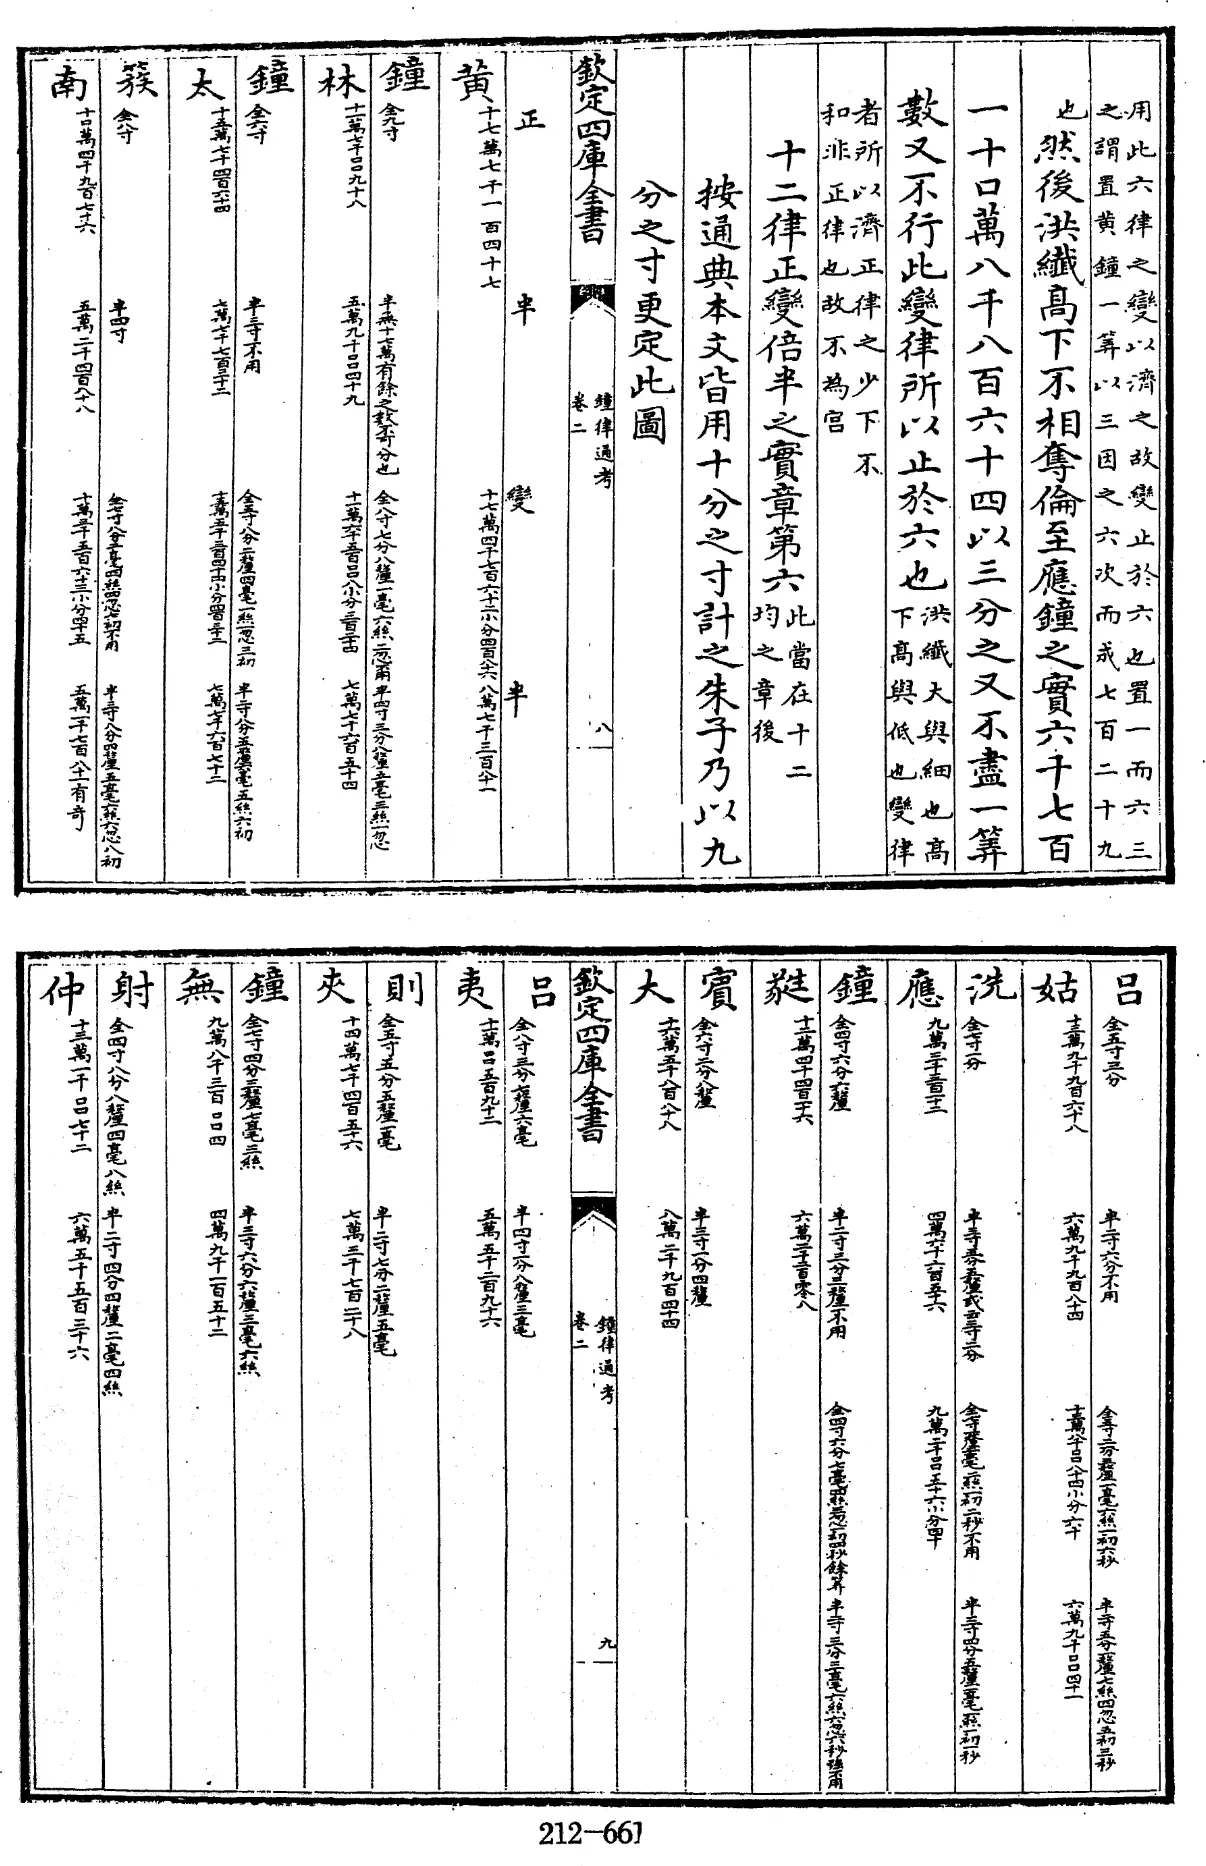 用此六律之變以濟之故變止於六也置一而六三
之謂置黄鐘一筭以三因之六次而成七百二十九
也然後洪纎髙下不相奪倫至應鐘之實六千七百
一十口萬八千八百六十四以三分之又不盡一筭
數又不行此變律所以止於六也洪纎大與細也高
下髙與低也變律
者所以濟正律之少下不
和非正律也故不為宫
十二律正變倍半之實章第六此當在十二
均之章後
按通典本文皆用十分之寸計之朱子乃以九
分之寸更定此圖
欽定四庫全書
鐘律通考
卷二
八
正 半 變 半
黄 十七萬七千一百四十七 十七萬四千七百六十二小分四百八十六 八萬七千三百八十一
鐘 全九寸 半無十七萬有餘之數不可分也 全八寸七分八釐一毫六絲二忽不用 半四寸三分八釐五毫三絲一忽
林 十一萬八千口九十八 五萬九千口四十九 十一萬六千五百口八小分三百二十四 七萬七千六百五十四
鐘 全六寸 半三寸不用 全五寸八分二釐四毫一絲一忽三初 半二寸八分五釐六毫五絲六初
太 十五萬七千四百六十四 七萬八千七百三十二 十五萬五千三百四十四小分四百三十二 七萬七千六百七十二
簇 全八寸 半四寸 全七寸八分二毫四絲四忽七初不用 半三寸八分四釐五毫六絲六忽八初
南 十口萬四千九百七十六 五萬二千四百八十八 十萬三千五百六十三小分四十五 五萬一千七百八十一有奇
吕 全五寸三分 半二寸六分不用 全五寸二分三釐一毫六絲一初六秒 半二寸五分六釐七絲四忽五初三秒
姑 十三萬九千九百六十八 六萬九千九百八十四 十三萬八千口八十四小分六十 六萬九千口四十一
洗 全七寸一分 半三寸五分五釐或云三寸二分 半三寸四分五釐一毫一絲一初一秒
應 九萬三千三百一十二 四萬六千六百五十六 九萬二千口五十六小分四十
鐘 全四寸六分六釐 半二寸三分三釐不用 全四寸六分七毫四絲三忽一初四秒餘筭 半二寸三分三毫六絲六忽六秒強不用
蕤 十二萬四千四百一十六 六萬二千二百零八
賓 全六寸二分八釐 半三寸一分四釐
大 十六萬五千八百八十八 八萬二千九百四十四
欽定四庫全書
鐘律通考
卷二
九
吕 全八寸三分七釐六毫 半四寸一分八釐三毫
夷 十一萬口五百九十二 五萬五千二百九十六
則 全五寸五分五釐一毫 半二寸七分二釐五毫
夾 十四萬七千四百五十六 七萬三千七百二十八
鐘 全七寸四分三釐七毫三絲 半三寸六分六釐三毫六絲
無 九萬八千三百口四 四萬九千一百五十二
射 全四寸八分八釐四毫八絲 半二寸四分四釐二毫四絲
仲 十三萬一千口七十二 六萬五千五百三十六
212-661